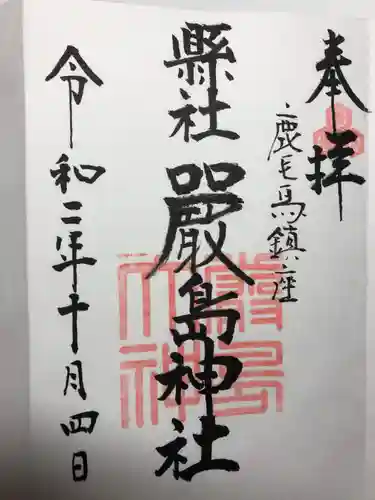 奉拝
鹿毛馬鎮座
縣社
嚴島神社
令和二年十月四日